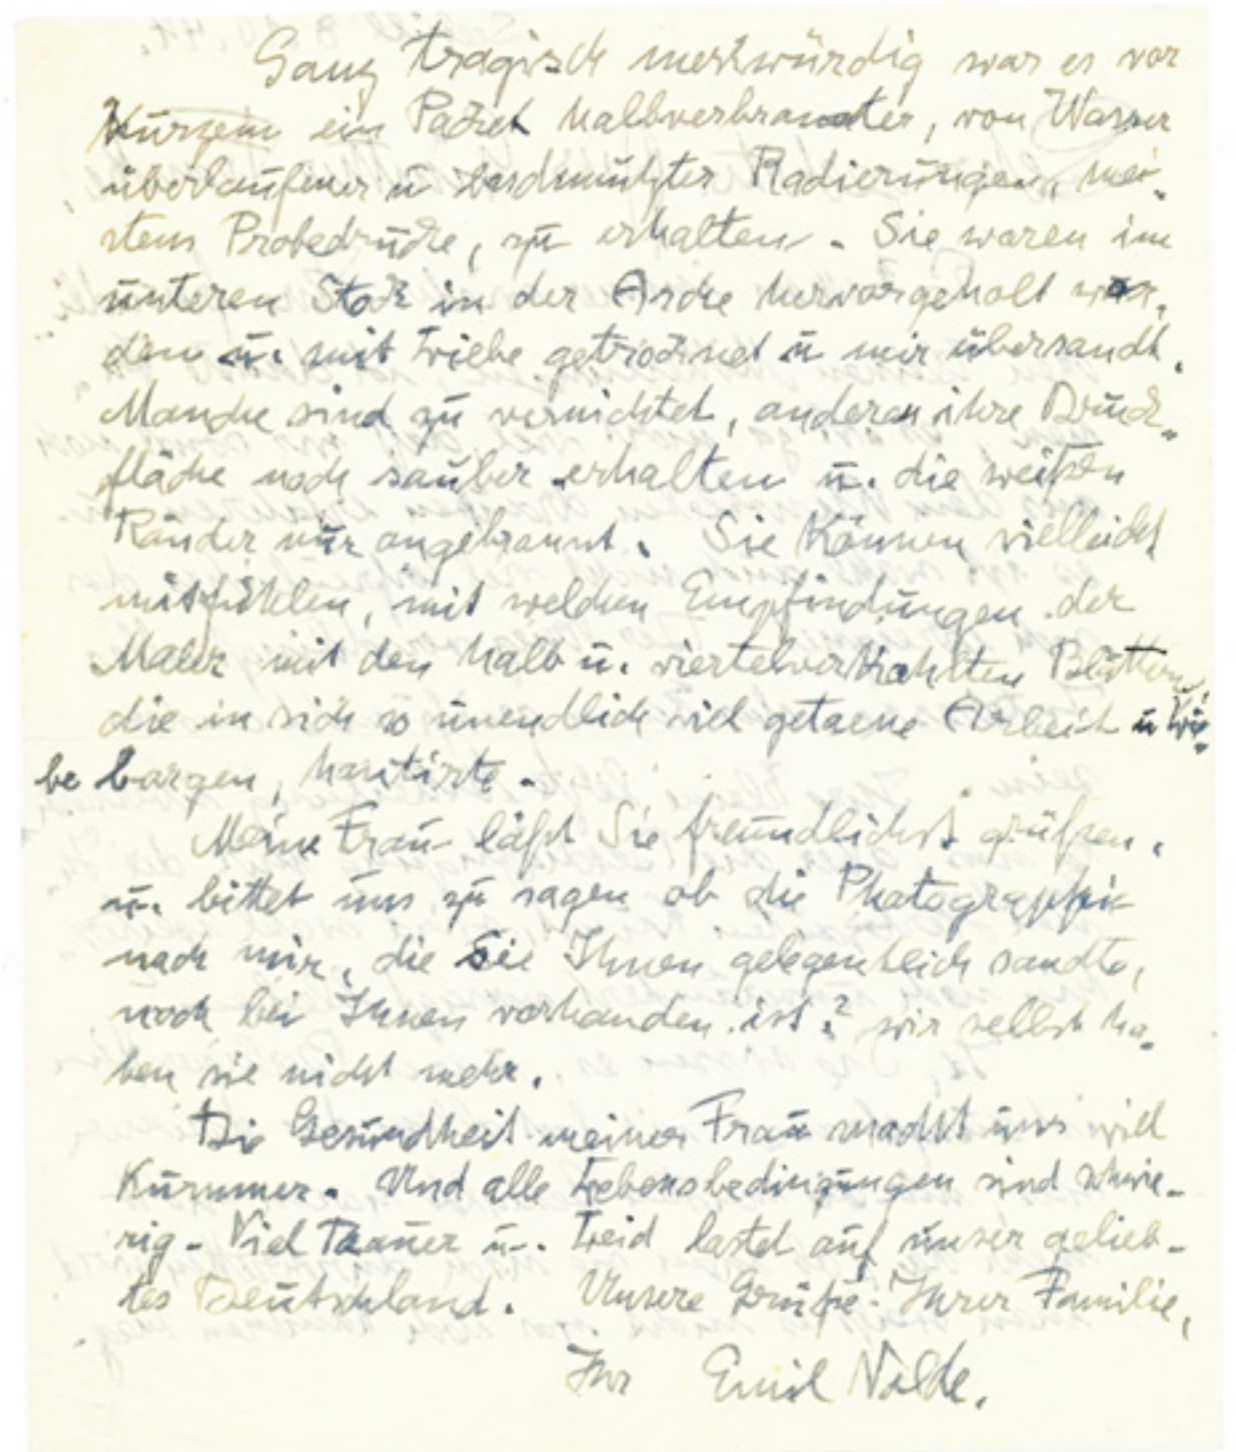 Ganz tragisch merkwürdig war es vor
Kurzem ein Packet halbverbrannter, von Wasser
überlaufener u beschmutzter Radierungen, mei-
stens Probedrucke, zu erhalten. Sie waren im
unteren Stock in der Asche hervorgeholt wor-
den u. mit Liebe getrocknet u mir übersandt.
Manche sind zu vernichtet, anderen ihre Druck-
fläche noch sauber erhalten u. die weißen
Ränder nur angebrannt. Sie können vielleicht
mitfühlen, mit welchen Empfindungen der
Maler mit den halb u. viertelverkohlten Blättern,
die in sich so unendlich viel getaene Arbeit u Lie-
be bargen, hantirte.
Meine Frau läßt Sie freundlichst grüßen,
u. bittet uns zu sagen ob die Photographie
nach mir, die Sie Ihnen gelegentlich sandte,
noch bei Ihnen vorhanden ist? wir selbst ha-
ben sie nicht mehr.
Die Gesundheit meiner Frau macht uns viel
Kummer. Und alle Lebensbedingungen sind schwie-
rig. Viel Trauer u. Leid lastet auf unser gelieb-
tes Deutschland. Unsere Grüße Ihrer Familie,
Ihr Emil Nolde.